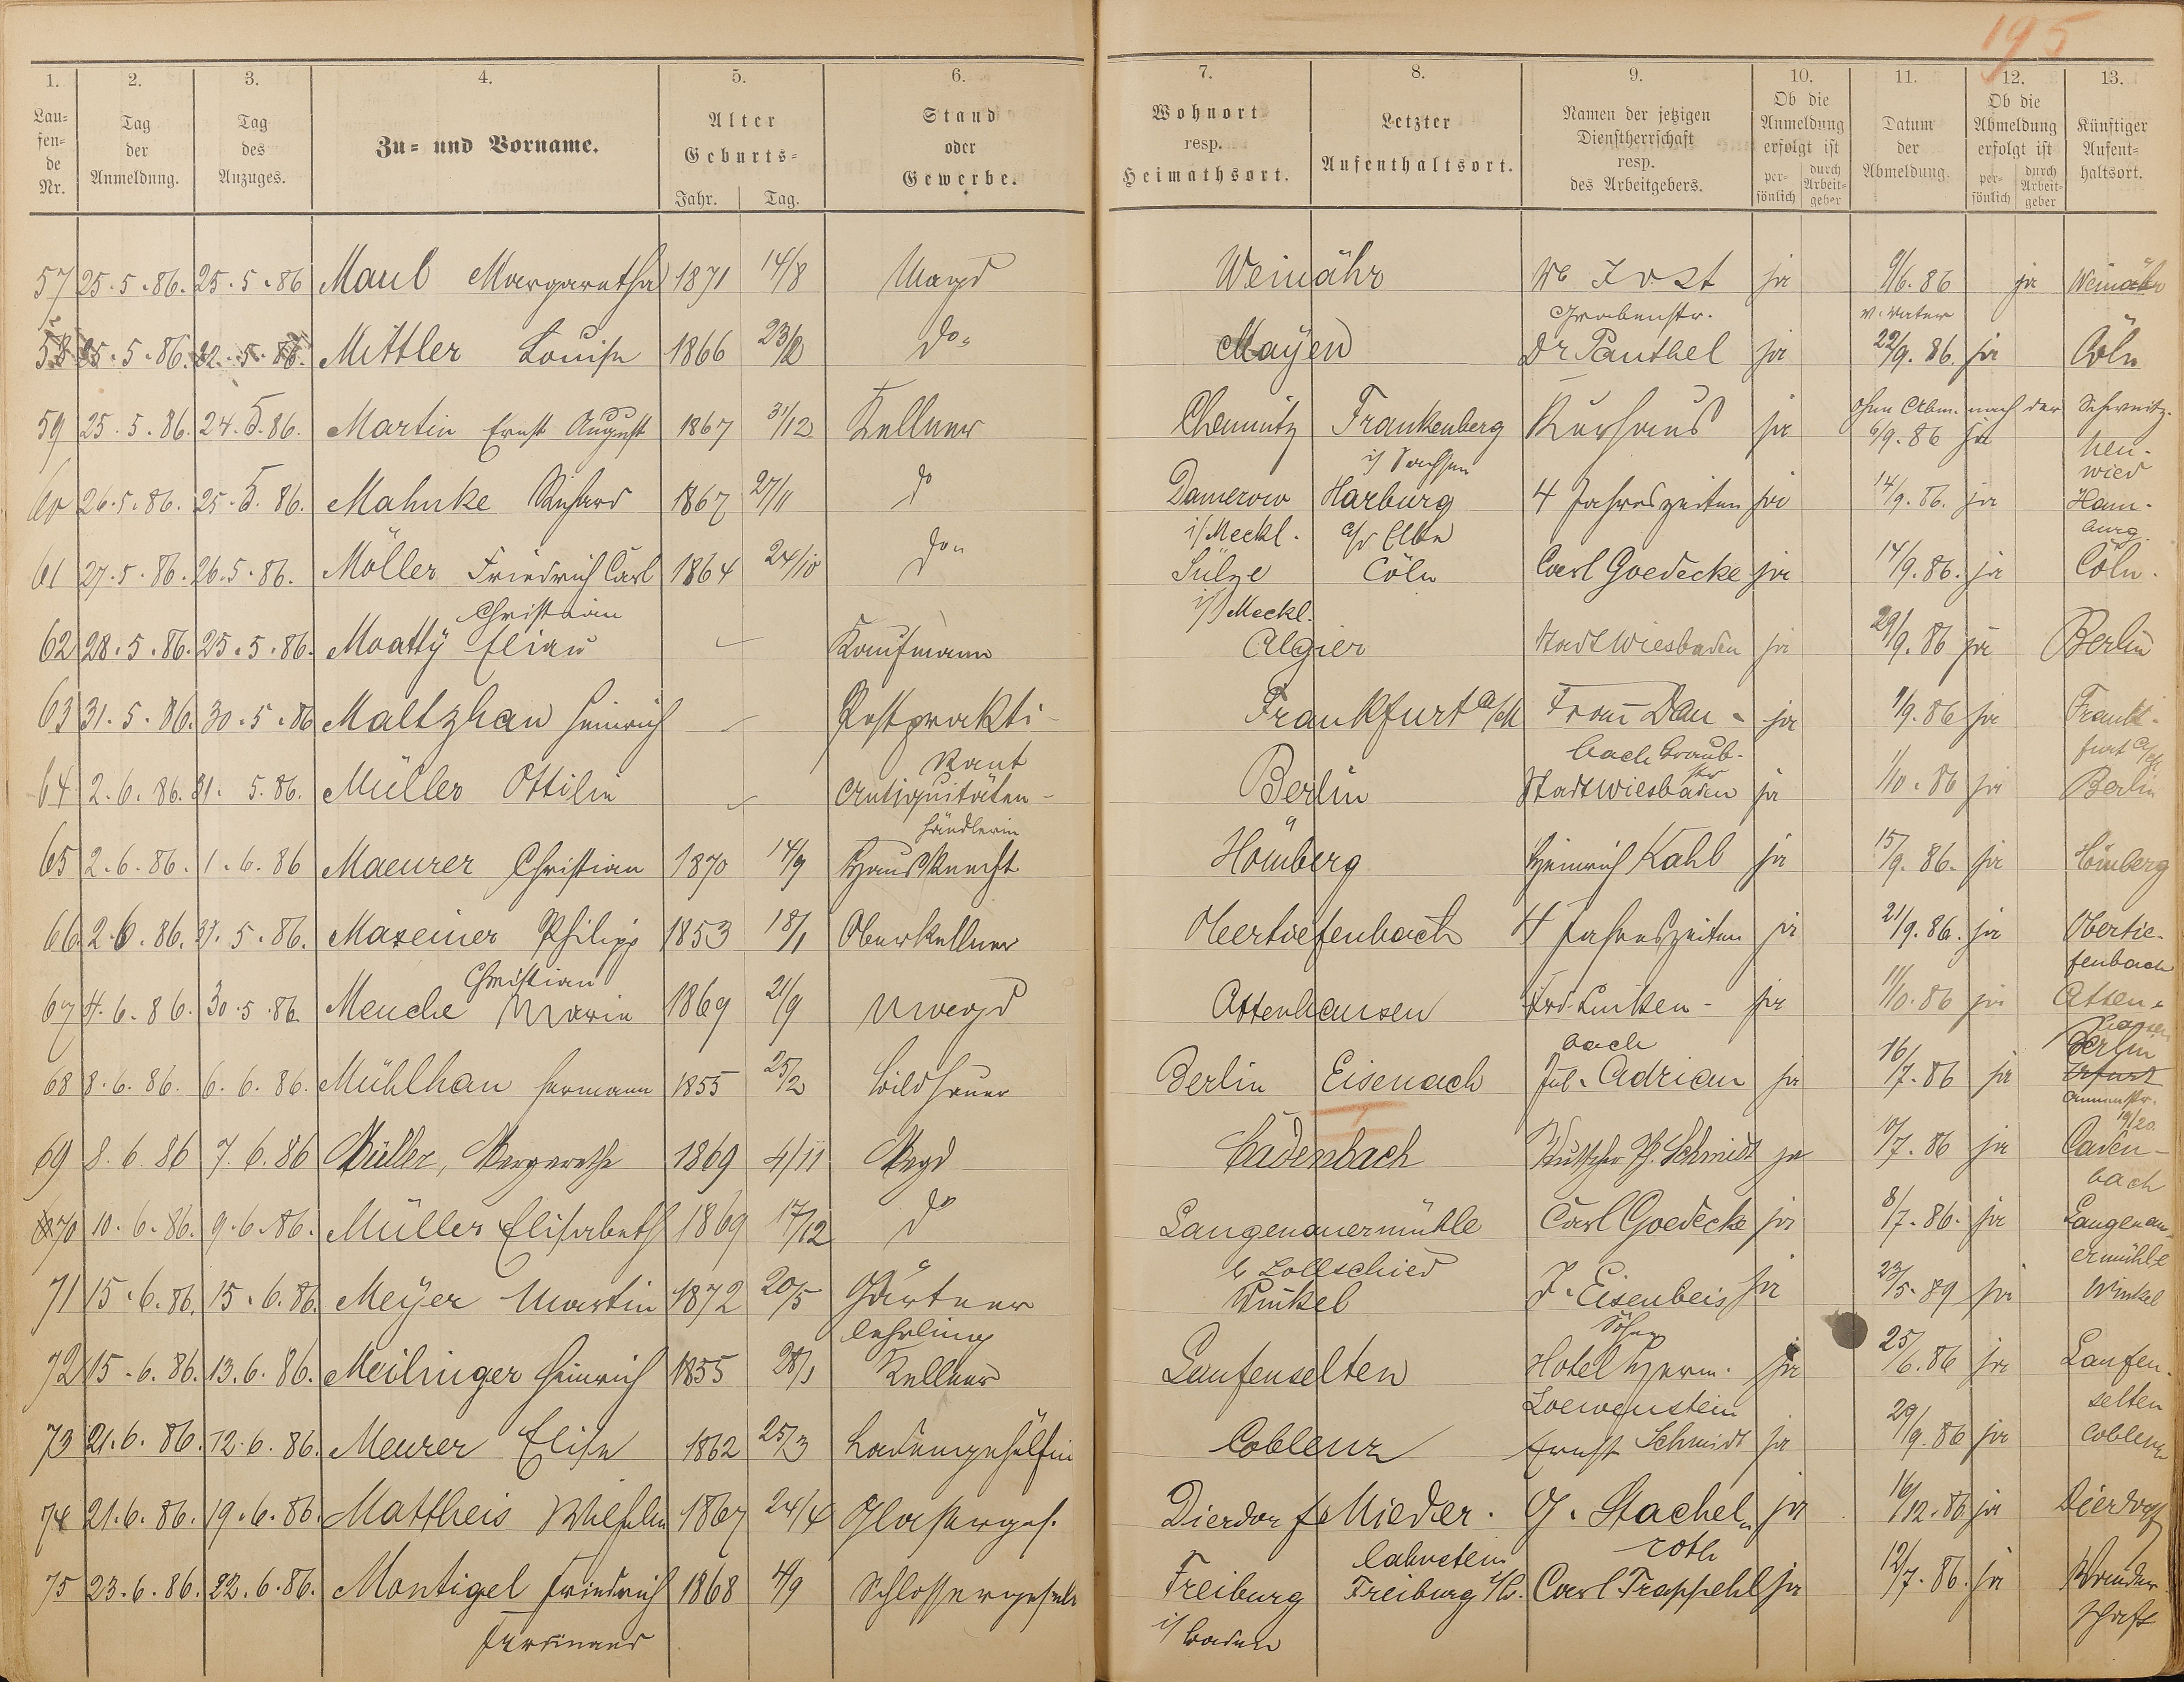 195
1. 2. 3. 4. 5. 6. 7. 8. 9. 10. 11. 12. 13.
Laufende Nr. Tag der Anmeldung. Tag des Anzuges. Zu- und Vorname. Alter Geburts- Jahr. Tag. Stand oder Gewerbe. Wohnort resp. Heimathsort. Letzter Aufenthaltsort. Namen der jetzigen Dienstherrschaft resp. des Arbeitgebers. Ob die Anmeldung erfolgt ist persönlich durch Arbeitgeber Datum der Abmeldung. Ob die Abmeldung erfolgt ist persönlich durch Arbeitgeber Künftiger Aufenthaltsort.
57 25.5.86. 25.5.86 Maul Margaretha 1871 14/8 Magd Weinähr We Jost Grabenstr. ja 9/6.86 v. Vater ja Weinähr
58 25.5.86. 22.5.86. Mittler Louise 1866 23/2 do. Mayen Dr Panthel ja 22/9.86. ja Cöln
59 25.5.86. 24.5.86. Martin Ernst August 1867 31/12 Kellner Chemnitz Frankenberg i/ Sachsen Kurhaus ja ohne Abm. nach der Schweitz. 6/9.86 ja Neuwied
60 26.5.86. 25.5.86. Mahnke Richard 1867 27/11 do Damerow i/ Meckl. Harburg a/d Elbe 4 Jahreszeiten ja 14/9.86. ja Hamburg.
61 27.5.86. 26.5.86. Möller Friedrich Carl Christian 1864 24/10 do. Sülze i/ Meckl. Cöln Carl Goedecke ja 14/9.86. ja Cöln.
62 28.5.86. 25.5.86. Moatty Eliau Kaufmann Algier Stadt Wiesbaden ja 29/9.86 ja Berlin
63 31.5.86. 30.5.86 Maltzhan Heinrich Postpraktikant Frankfurt a/M Frau Daubach Graubstr ja 1/9.86 ja Frankfurt a/M
64 2.6.86. 31.5.86. Müller Ottilie Antiquitätenhändlerin Berlin Stadt Wiesbaden ja 1/10.86 ja Berlin
65 2.6.86. 1.6.86 Maeurer Christian 1870 14/9 Hausknecht Hömberg Heinrich Kahl ja 15/9.86. ja Hömberg
66 2.6.86. 31.5.86. Maxeiner Philipp Christian 1853 18/1 Oberkellner Obertiefenbach 4 Jahreszeiten ja 21/9.86. ja Obertiefenbach
67 4.6.86. 30.5.86. Menche Marie 1869 21/9 Magd Attenhausen Frd. Linkenbach ja 11/10.86 ja Attenhausen
68 8.6.86. 6.6.86. Mühlhan Hermann 1855 25/2 Bildhauer Berlin Eisenach Jul. Adrian ja 16/7.86 ja Berlin Erfurt Annenstr. 19/20.
69 8.6.86 7.6.86 Müller, Margarethe 1869 4/11 Magd Cadenbach Kutscher Ph. Schmidt ja 10/7.86 ja Cadenbach
70 10.6.86. 9.6.86. Müller Elisabeth 1869 17/12 do Langenauermühle b Lollschied Carl Goedecke ja 8/7.86. ja Langenauermühle
71 15.6.86. 15.6.86. Meyer Martin 1872 20/5 Gärtnerlehrling Winkel J. Eisenbeis Söhne ja 23/5.89 ja Winkel
72 15.6.86. 13.6.86. Meilinger Heinrich 1855 28/1 Kellner Laufenselten Hotel Herm. Loewenstein ja 25/6.86 ja Laufenselten
73 21.6.86. 12.6.86. Meurer Elise 1862 25/3 Ladengehülfin Coblenz Ernst Schmidt ja 29/9.86 ja Coblenz
74 21.6.86. 19.6.86. Mattheis Wilhelm 1867 24/4 Glaserges. Dierdorf Niederlahnstein G. Stachelroth ja 16/12.86 ja Dierdorf
75 23.6.86. 22.6.86. Montigel Friedrich Ferdinand 1868 4/9 Schlossergeselle Freiburg i/ Baden Freiburg i/B. Carl Trappehl ja 12/7.86. ja Wanderschaft